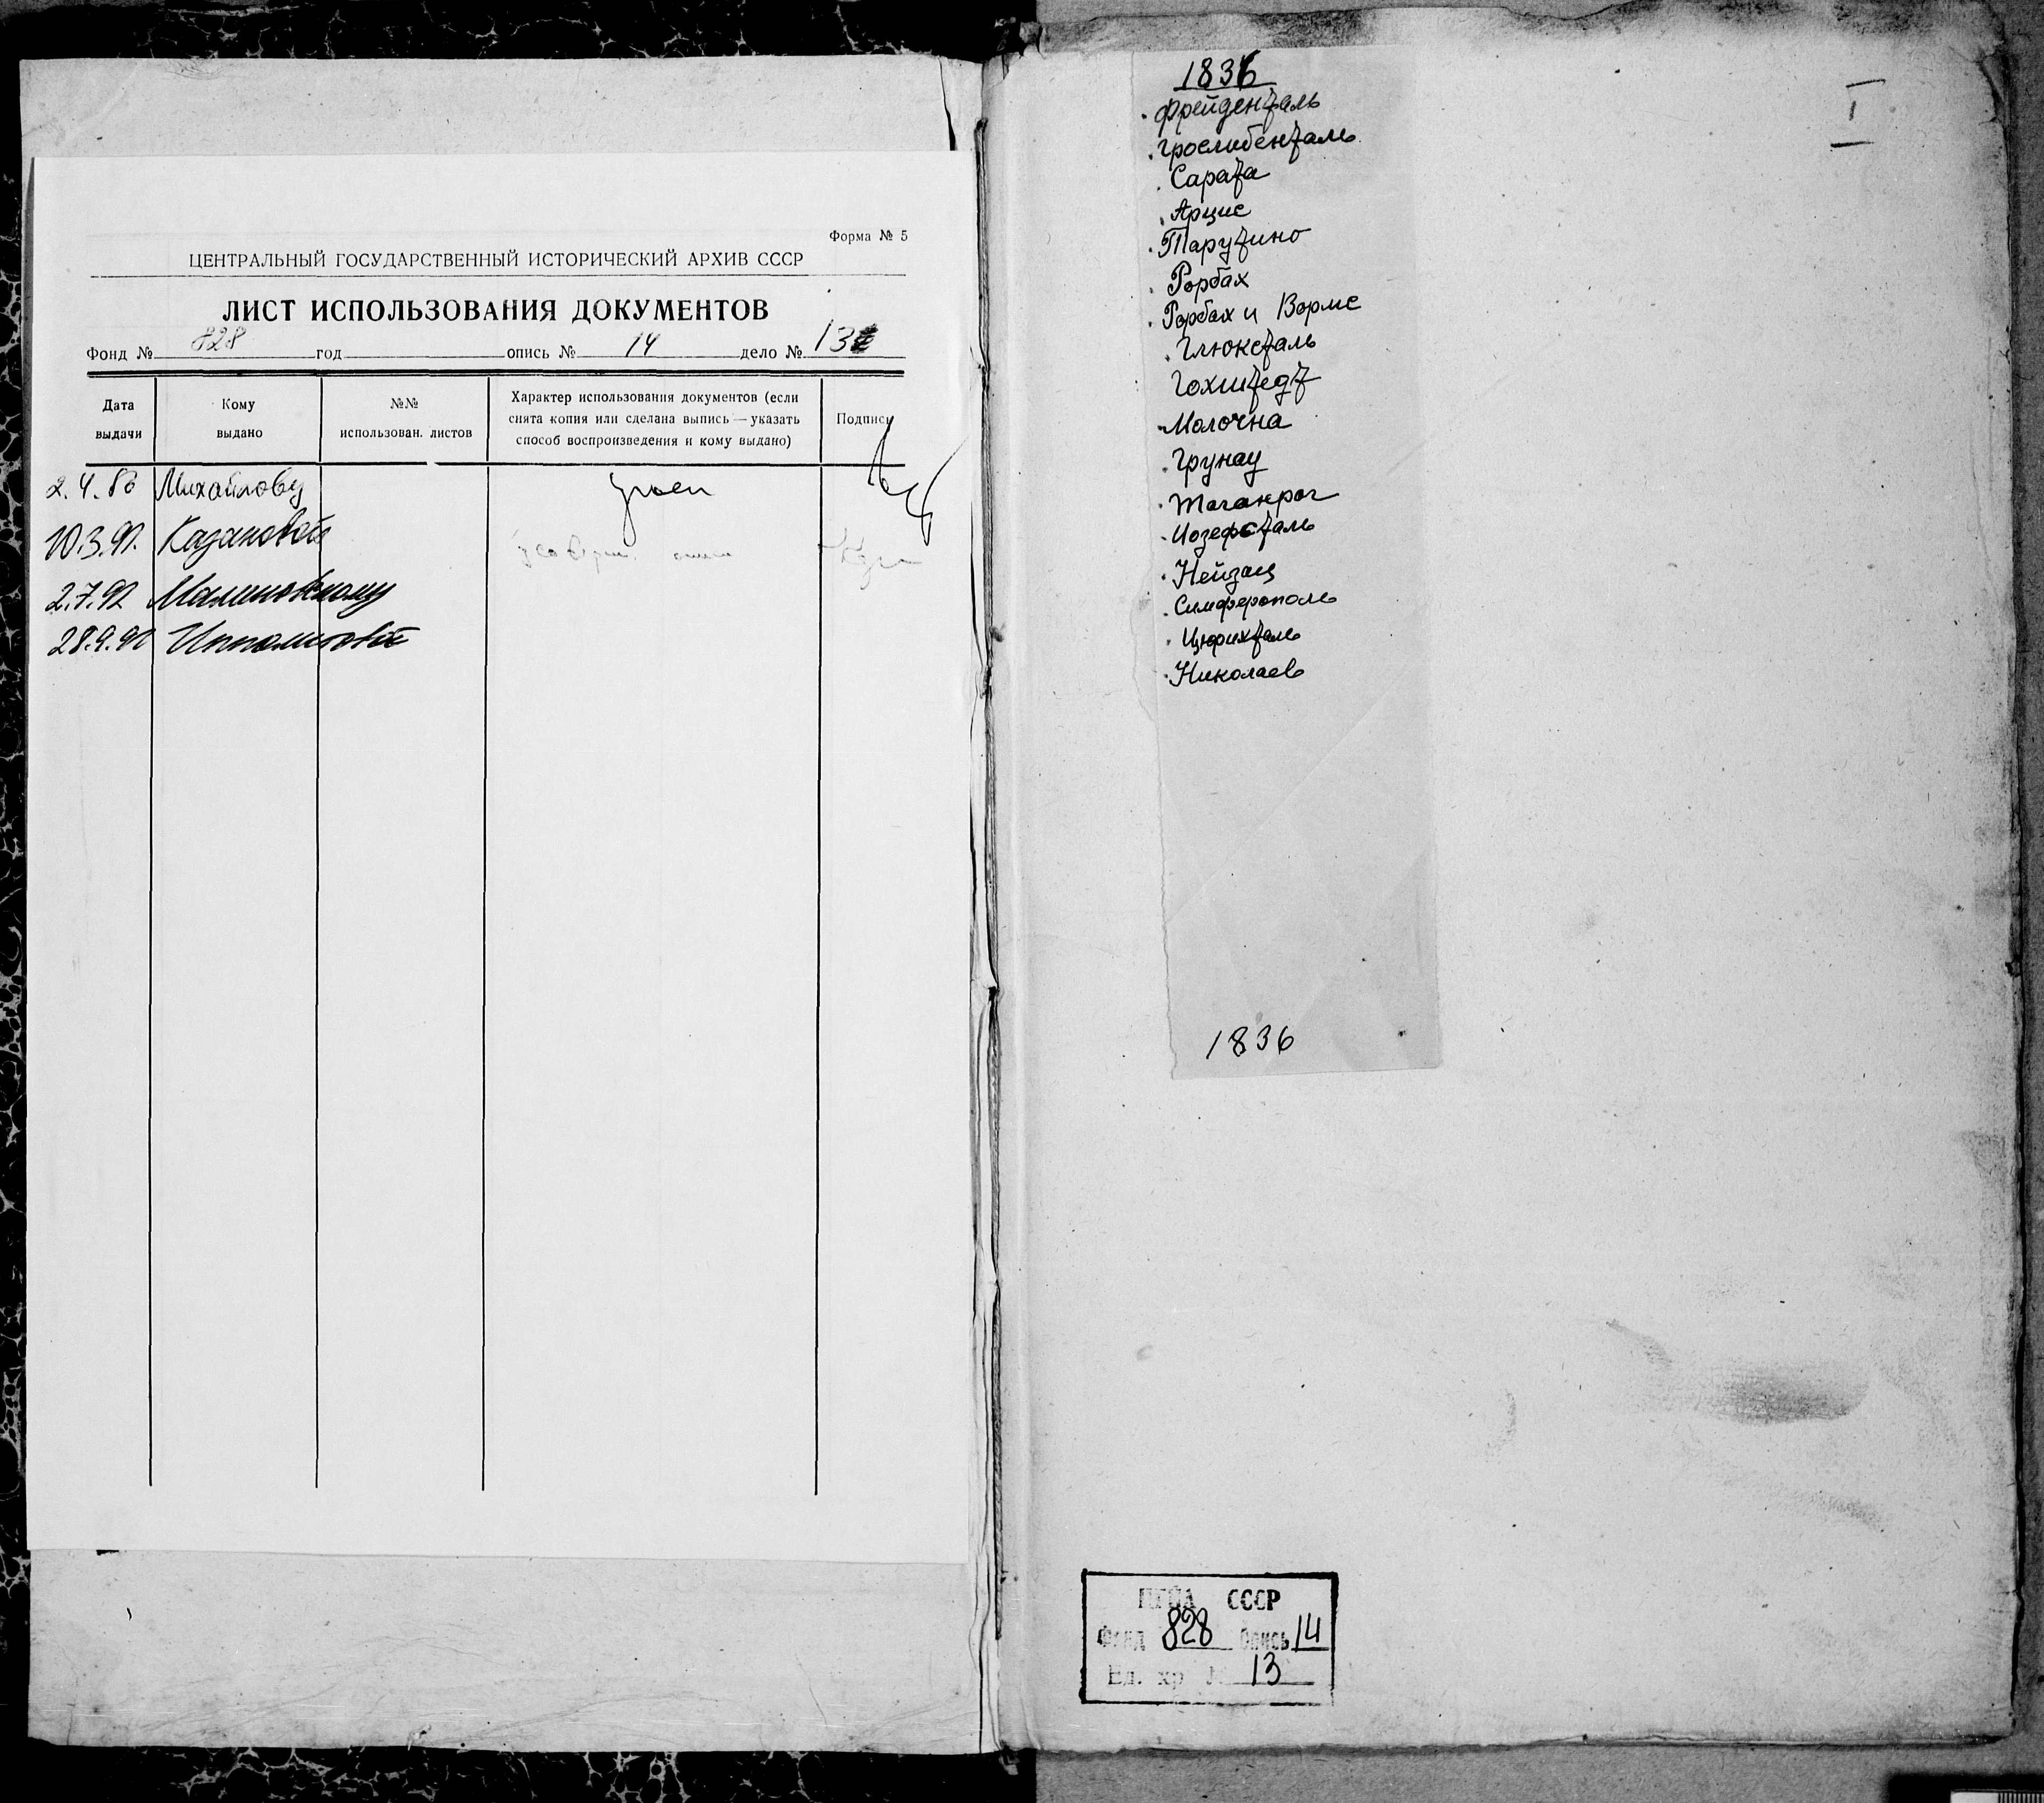 Форма № 5
ЦЕНТРАЛЬНЫЙ ГОСУДАРСТВЕННЫЙ ИСТОРИЧЕСКИЙ АРХИВ СССР
ЛИСТ ИСПОЛЬЗОВАНИЯ ДОКУМЕНТОВ
Фонд № 828 год опись № 14 дело № 13
Дата выдачи
Кому выдано
№№ использован. листов
Характер использования документов (если
снята копия или сделана выпись — указать
способ воспроизведения и кому выдано)
Подпись
2.4.86 Михайлову
10.3.91. Казаковой
2.7.92 Малиновскому
28.9.92 Ипполитовой
1836
Фрейденталь
Грослибенталь
Сарата
Арцис
Тарутино
Рорбах
Рорбах и Вормс
Глюксталь
Гохштедт
Молочна
Грунау
Таганрог
Иозефсталь
Нейзац
Симферополь
Цюрихталь
Николаев
1836
I
ЦГИА СССР
Фонд 828 Опись 14
Ед. хр 13